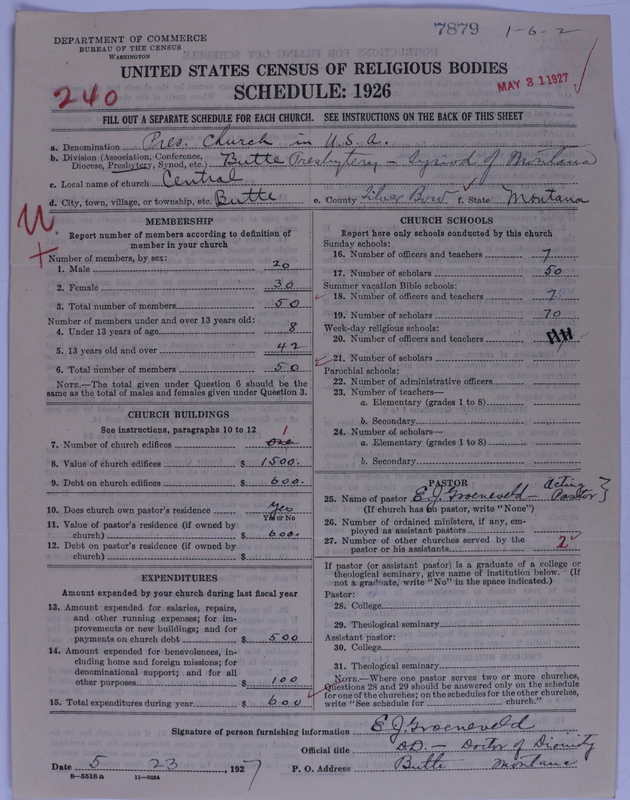 7879 1-6-2
DEPARTMENT OF COMMERCE
BUREAU OF THE CENSUS
WASHINGTON
UNITED STATES CENSUS OF RELIGIOUS BODIES
SCHEDULE: 1926
240
MAY 31 1927
FILL OUT A SEPARATE SCHEDULE FOR EACH CHURCH. SEE INSTRUCTIONS ON THE BACK OF THIS SHEET
a. Denomination Pres. Church in U.S.A.
b. Division (Association, Conference, Diocese, Presbytery, Synod, etc.) Butte Presbytery - Synod of Montana
c. Local name of church Central
d. City, town, village, or township, etc. Butte e. County Silver Bow f. State Montana
MEMBERSHIP
Report number of members according to definition of
member in your church
Number of members, by sex:
1. Male 20
2. Female 30
3. Total number of members 50
Number of members under and over 13 years old:
4. Under 13 years of age 8
5. 13 years old and over 42
6. Total number of members 50
NOTE.—The total given under Question 6 should be the
same as the total of males and females given under Question 3.
CHURCH BUILDINGS
See instructions, paragraphs 10 to 12
7. Number of church edifices one 1
8. Value of church edifices $ 1500.
9. Debt on church edifices $ 600.
10. Does church own pastor's residence Yes
Yes or No
11. Value of pastor's residence (if owned by
church) $ 600.
12. Debt on pastor's residence (if owned by
church) $
EXPENDITURES
Amount expended by your church during last fiscal year
13. Amount expended for salaries, repairs,
and other running expenses; for im-
provements or new buildings; and for
payments on church debt $ 500
14. Amount expended for benevolences, in-
cluding home and foreign missions; for
denominational support; and for all
other purposes $ 100
15. Total expenditures during year $ 600
CHURCH SCHOOLS
Report here only schools conducted by this church
Sunday schools:
16. Number of officers and teachers 7
17. Number of scholars 50
Summer vacation Bible schools:
18. Number of officers and teachers 7
19. Number of scholars 70
Week-day religious schools:
20. Number of officers and teachers
21. Number of scholars
Parochial schools:
22. Number of administrative officers
23. Number of teachers—
a. Elementary (grades 1 to 8)
b. Secondary
24. Number of scholars—
a. Elementary (grades 1 to 8)
b. Secondary
PASTOR
25. Name of pastor E. J. Groeneveld - Acting Pastor
(If church has no pastor, write "None")
26. Number of ordained ministers, if any, em-
ployed as assistant pastors
27. Number of other churches served by the
pastor or his assistants 2
If pastor (or assistant pastor) is a graduate of a college or
theological seminary, give name of institution below. (If
not a graduate, write "No" in the space indicated.)
Pastor:
28. College
29. Theological seminary
Assistant pastor:
30. College
31. Theological seminary
NOTE.—Where one pastor serves two or more churches,
Questions 28 and 29 should be answered only on the schedule
for one of the churches; on the schedules for the other churches,
write "See schedule for church."
Signature of person furnishing information E. J. Groeneveld
Official title D.D. - Doctor of Divinity
Date 5 23, 1927 P. O. Address Butte Montana
8-5518a 11-9054